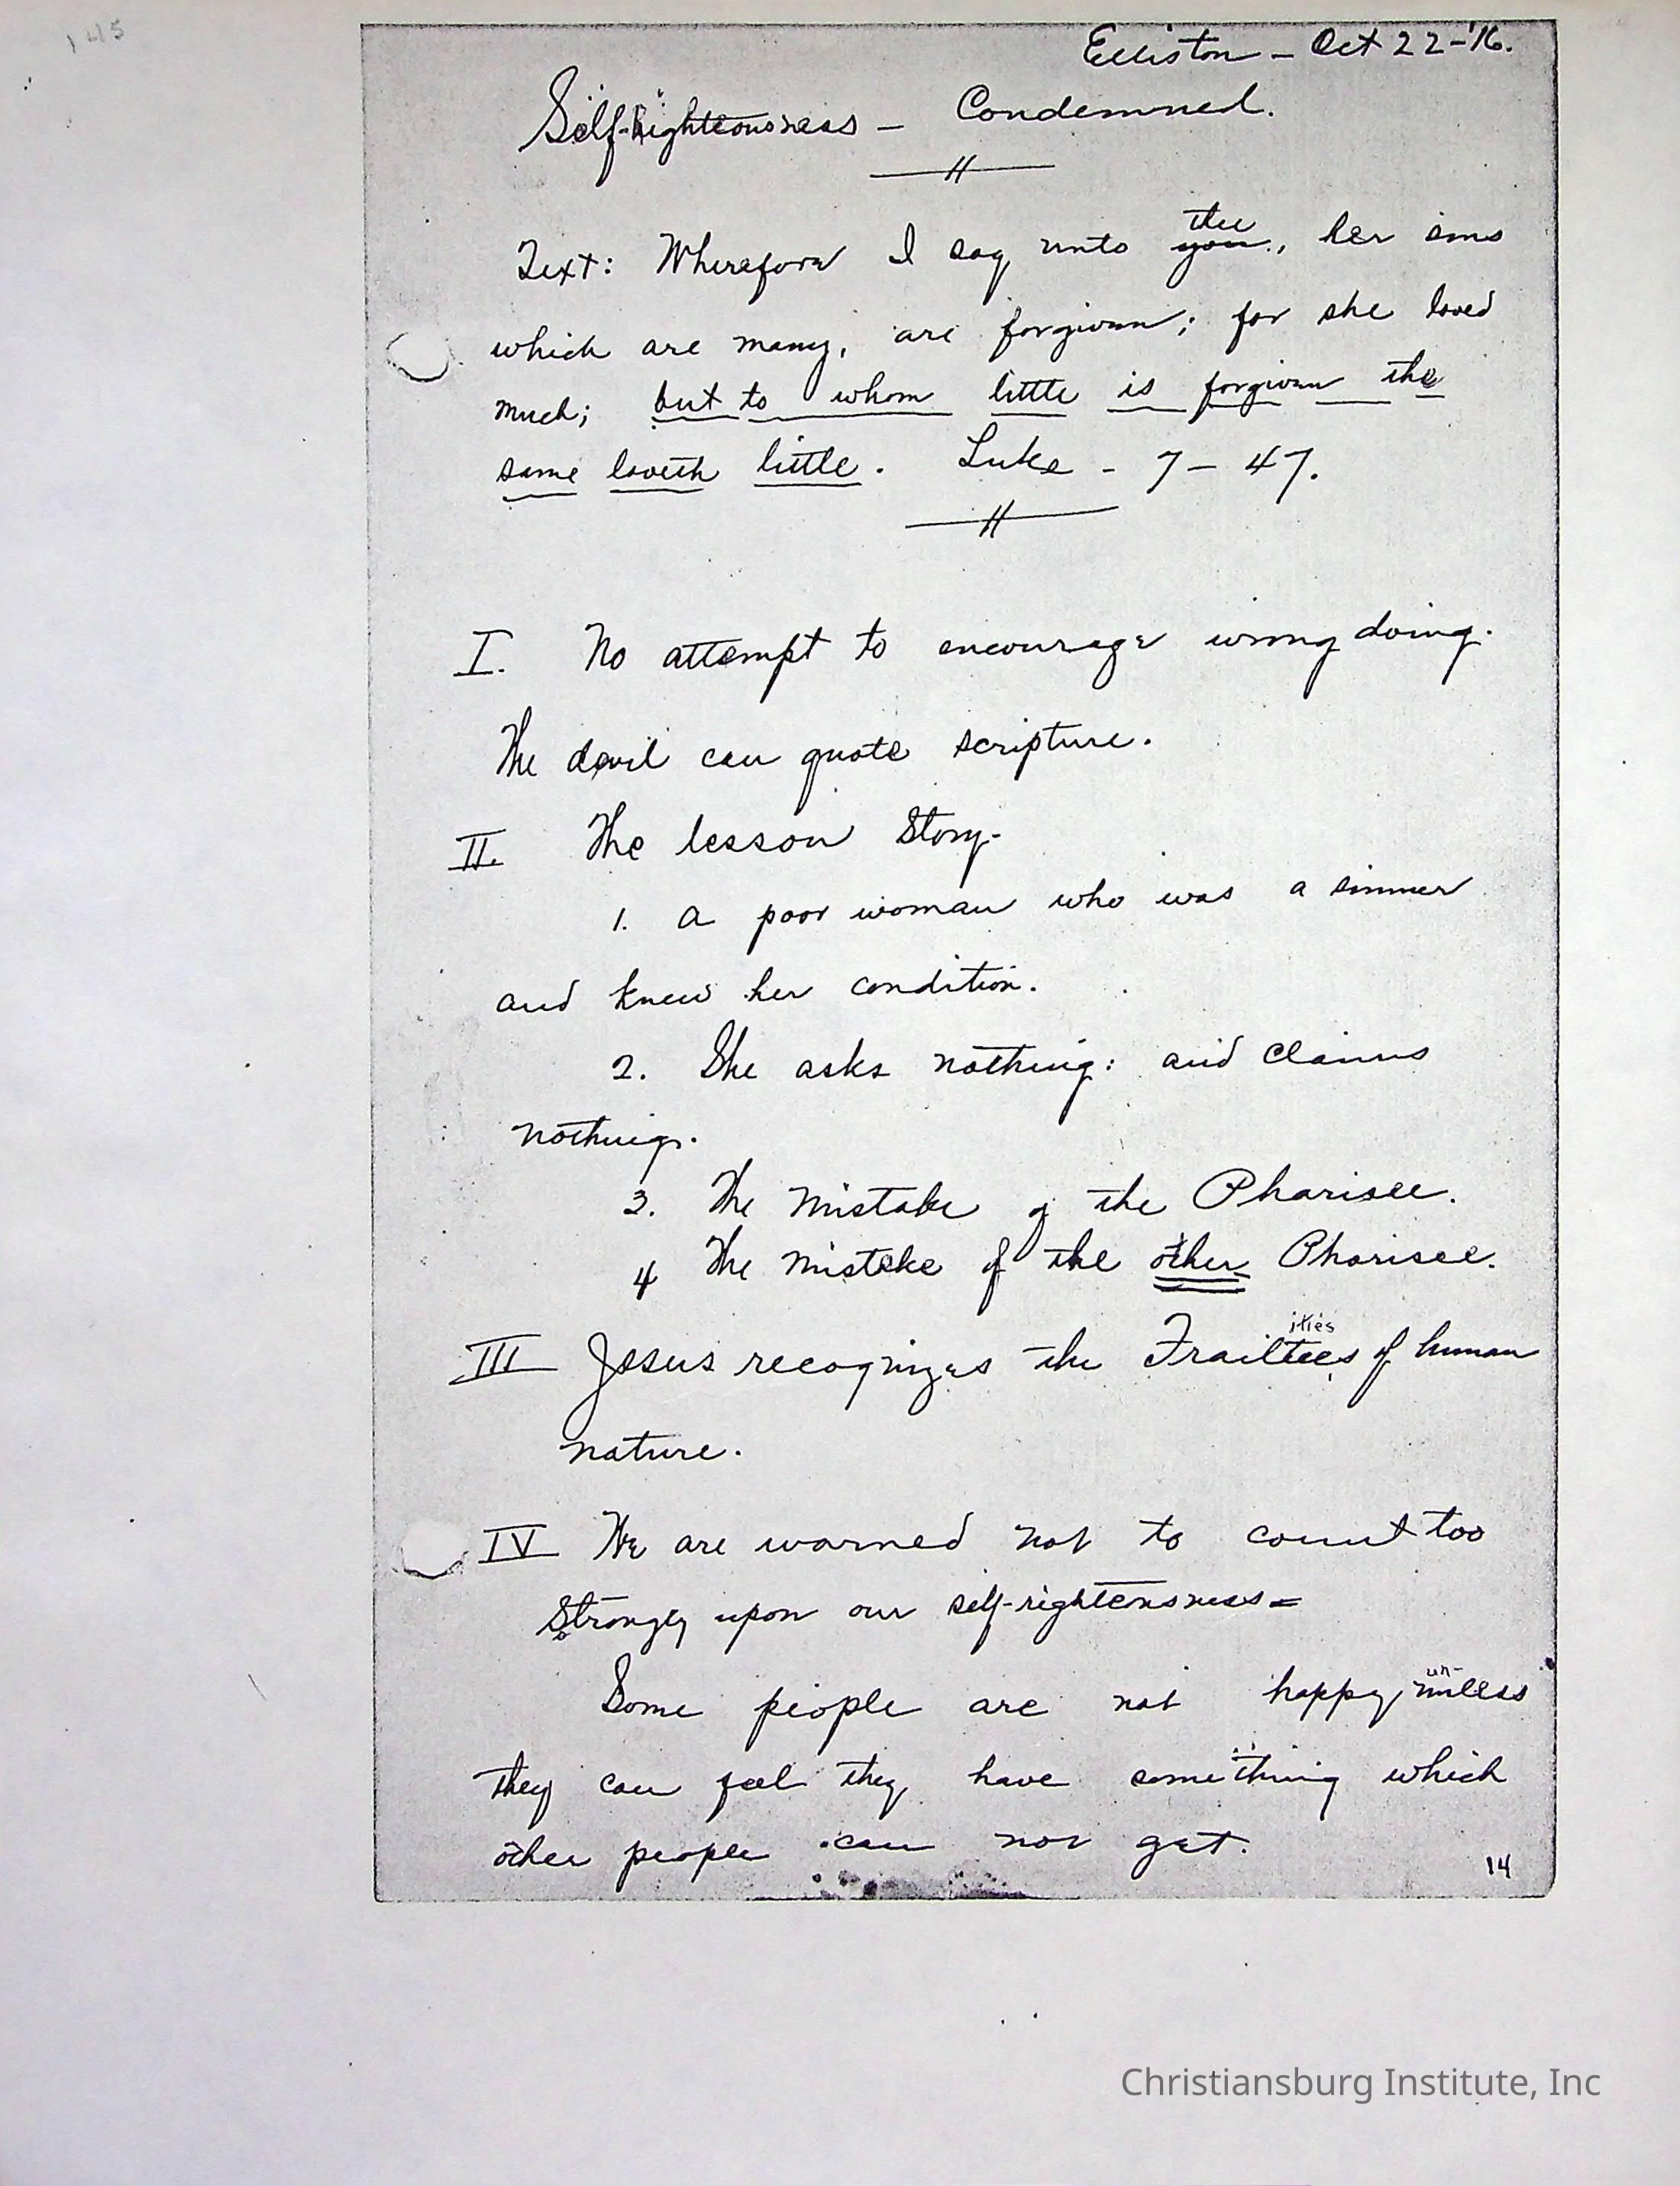 145
Elliston - Oct 22-'16.
Self-Righteousness - Condemned.
Text: Wherefore I say unto you thee, her sins
which are many, are forgiven; for she loved
much; but to whom little is forgiven the
same loveth little. Luke - 7 - 47.
I. No attempt to encourage wrong doing.
The devil can quote scripture.
II. The lesson Story.
1. A poor woman who was a sinner
and knew her condition.
2. She asks nothing: and claims
nothing.
3. The mistake of the Pharisee.
4 The mistake of the other Pharisee.
ities
III Jesus recognizes the Frailtees of human
nature.
IV We are warned not to count too
Strongly upon our self-righteousness-
un-
Some people are not happy, unless
they can feel they have something which
other people can not get.
14
Christiansburg Institute, Inc